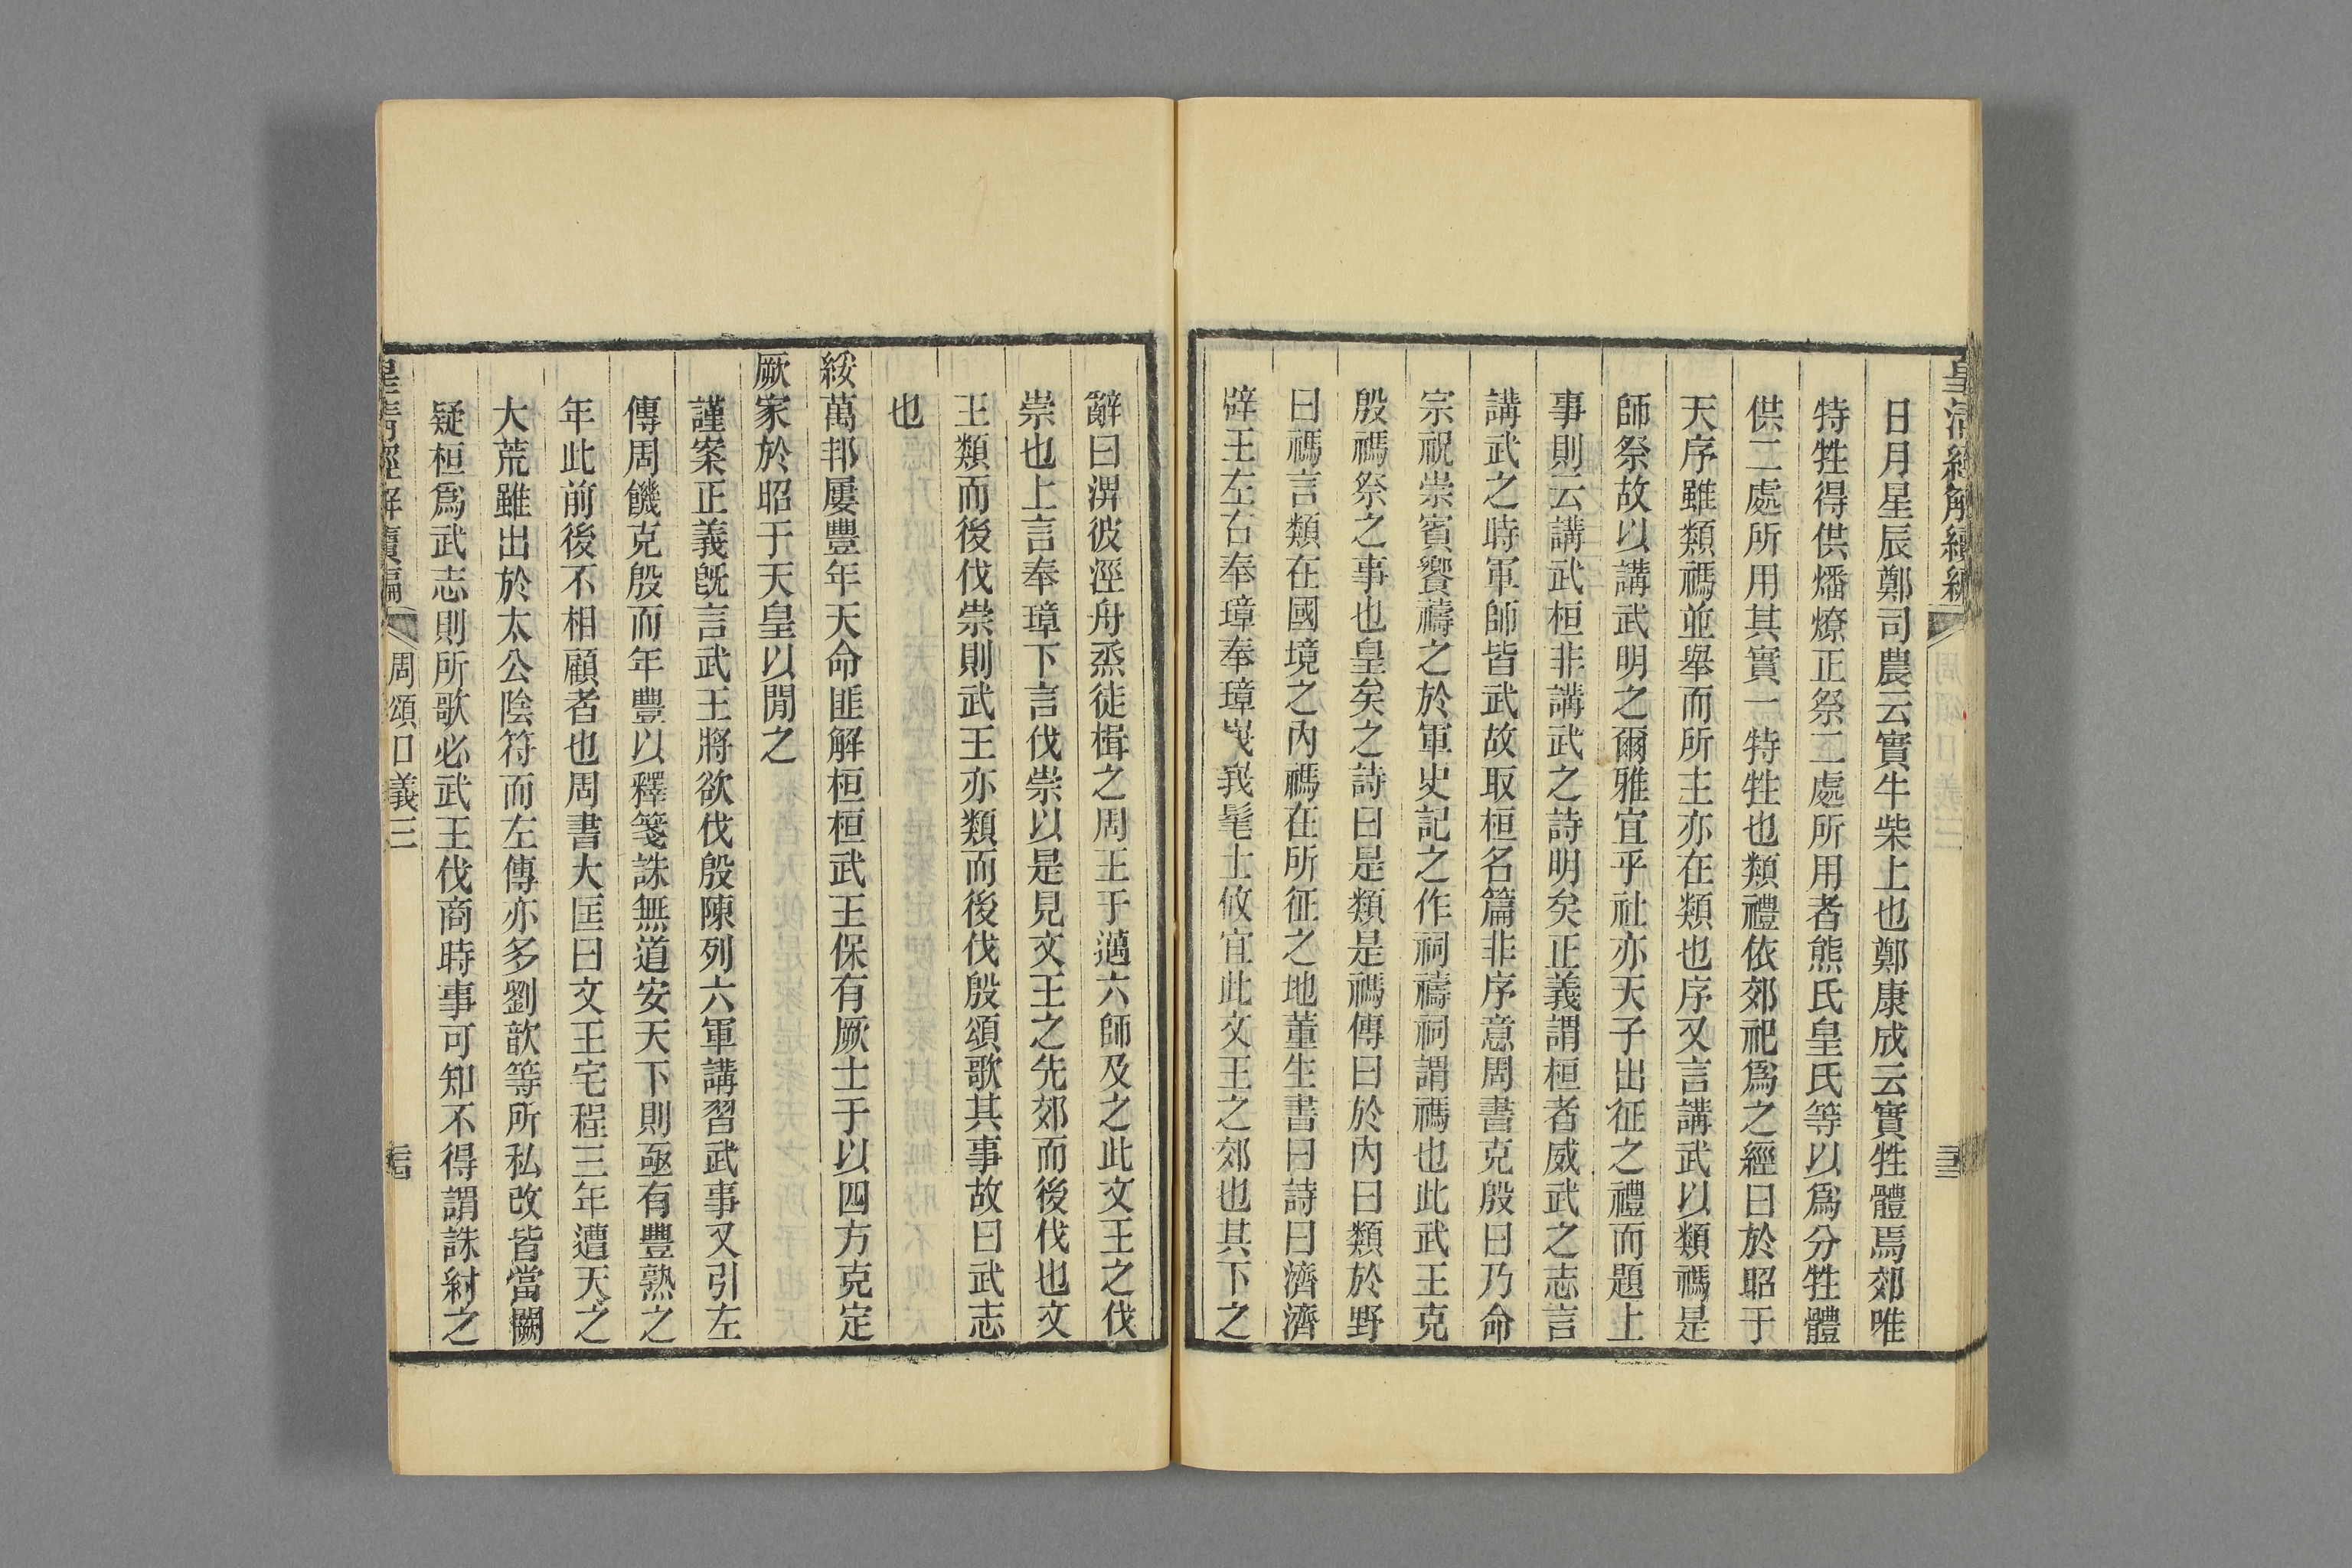 皇清經解續編
日月星辰鄭司農云實牛柴上也鄭康成云實牲體焉郊唯
特牲得供燔燎正祭二處所用者熊氏皇氏等以爲分牲體
供二處所用其實一特牲也類禮依郊祀爲之經曰於昭于
天序雖類禡並舉而所主亦在類也序又言講武以類禡是
師祭故以講武明之爾雅宜乎社亦天子出征之禮而題上
事則云講武桓非講武之詩明矣正義謂桓者威武之志言
講武之時軍師皆武故取桓名篇非序意周書克殷曰乃命
宗祝崇賓饗禱之於軍史記之作祠禱祠謂禡也此武王克
殷禡祭之事也皇矣之詩曰是類是禡傳曰於內曰類於野
曰禡言類在國境之內禡在所征之地董生書曰詩曰濟濟
辟王左右奉璋奉璋峩峩髦士攸宜此文王之郊也其下之
辭曰淠彼涇舟烝徒楫之周王于邁六師及之此文王之伐
崇也上言奉璋下言伐崇以是見文王之先郊而後伐也文
王類而後伐崇則武王亦類而後伐殷頌歌其事故曰武志
也
綏萬邦屢豐年天命匪解桓桓武王保有厥士于以四方克定
厥家於昭于天皇以閒之
謹案正義旣言武王將欲伐殷陳列六軍講習武事又引左
傳周饑克殷而年豐以釋箋誅無道安天下則亟有豐熟之
年此前後不相顧者也周書大匡曰文王宅程三年遭天之
大荒雖出於太公陰符而左傳亦多劉歆等所私改皆當闕
疑桓爲武志則所歌必武王伐商時事可知不得謂誅紂之
皇清經解續編
周頌口義三